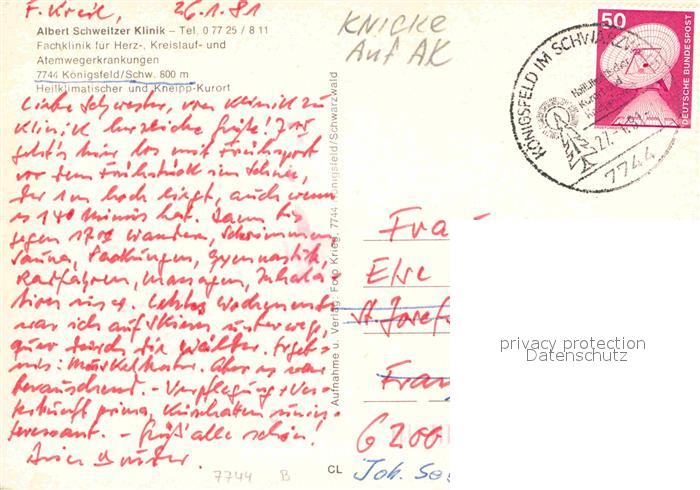 F. Kreil, 26.1.81
Albert Schweitzer Klinik – Tel. 0 77 25 / 8 11
Fachklinik für Herz-, Kreislauf- und
Atemwegerkrankungen
7744 Königsfeld/Schw. 800 m
Heilklimatischer und Kneipp-Kurort
Liebe Schwester, von Klinik zu
Klinik herzliche Grüße! 7:15
geht's hier los mit Frühsport
vor dem Frühstück im Schnee,
der 1m hoch liegt, auch wenn
es 14° minus hat. Dann bis
gegen 17 wandern, Schwimmen
Sauna, Packungen, Gymnastik
Radfahren, Massagen, Inhala
tionen usw. Letztes Wochenende
war ich auf Skiern unterwegs,
quer durch die Wälder. Ergeb-
nis: Muskelkater. Aber es war
berauschend. - Verpflegung + Un-
terkunft prima, Kurschatten unin-
teressant. - Grüß' alle schön!
KNICKE
Auf AK
50
DEUTSCHE BUNDESPOST
KÖNIGSFELD IM SCHWARZW
Heilklimatischer
Kurort und
27.-1.81-
7744
Aufnahme u. Verlag: Foto Krieg, 7744 Königsfeld/Schwarzwald
Frau
Else
St. Josefs
Frau
6200
Joh. Se
privacy protection
Datenschutz
7744 B
CL